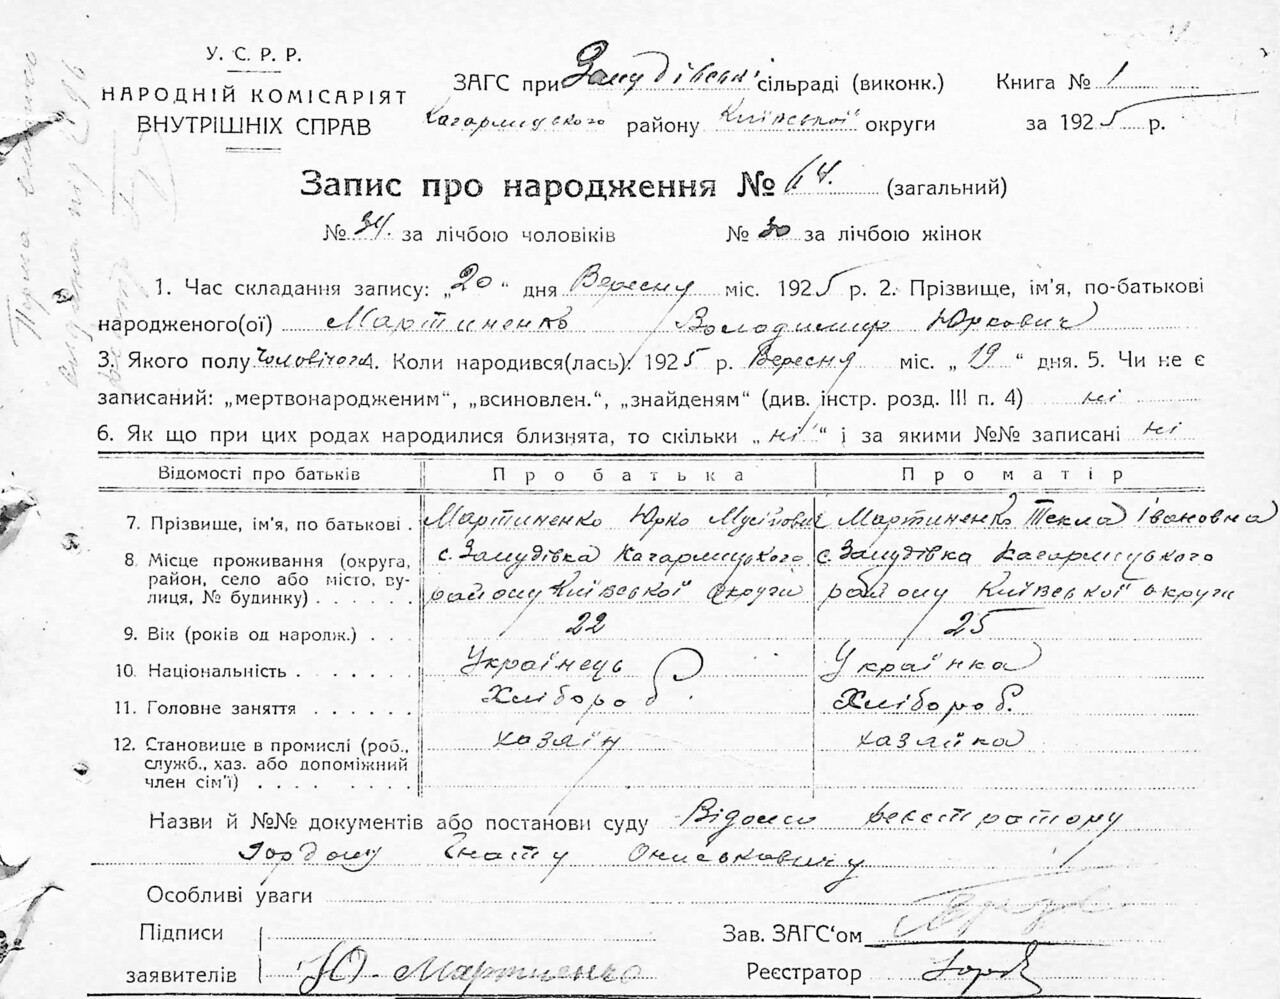 У. С. Р. Р.
НАРОДНІЙ КОМІСАРІЯТ
ВНУТРІШНІХ СПРАВ
ЗАГС при сільраді (виконк.)
Кагарлицского району Київської округи
Книга № 1
за 1925 р.
Запис про народження № 64. (загальний)
№ 34. за лічбою чоловіків № 30 за лічбою жінок
1. Час складання запису: „20“ дня Вересну міс. 1925 р. 2. Прізвище, ім'я, по-батькові
народженого(ої) Мартиненко Володимир Юркович
3. Якого полу Чоловічого 4. Коли народився(лась): 1925 р. Вересня міс. „19“ дня. 5. Чи не є
записаний: „мертвонародженим“, „всиновлен.“, „знайденям“ (див. інстр. розд. III п. 4) ні
6. Як що при цих родах народилися близнята, то скільки „ні“ і за якими №№ записані ні
Відомості про батьків Про батька Про матір
7. Прізвище, ім'я, по батькові . Мартиненко Юрко Мусійович Мартиненко Текла Івановна
8. Місце проживання (округа, район, село або місто, вулиця, № будинку) . . . . . с. Замудівка Кагарлицького району Київської округи с. Замудівка Кагарлицького району Київської округи
9. Вік (років од наролж.) . . . 22 25
10. Національність . . . . . . Українець Українка
11. Головне заняття . . . . . . Хлібороб Хлібороб.
12. Становище в промислі (роб., служб., хаз. або допоміжний член сім'ї) . . . . . . хазяїн хазяйка
Назви й №№ документів або постанови суду Відомо
Гордому Гнату Ониськовичу
Особливі уваги
Підписи
заявителів Ю. Мартиненко
Зав. ЗАГС'ом
Реєстратор